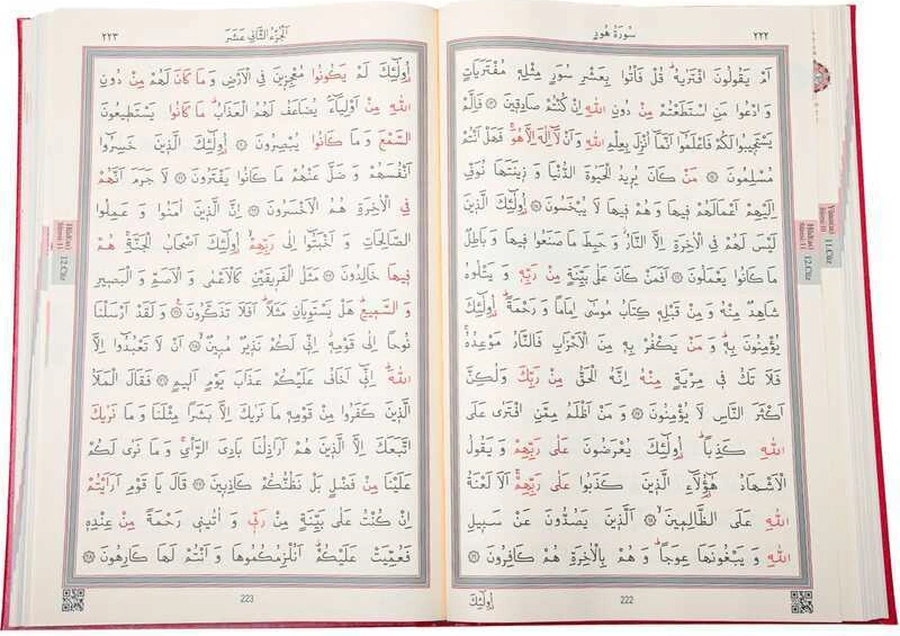 ٢٢٢
سُورَةُ هُودٍ
اَمْ يَقُولُونَ افْتَرٰيهُۜ قُلْ فَأْتُوا بِعَشْرِ سُوَرٍ مِثْلِه۪ مُفْتَرَيَاتٍ
وَ ادْعُوا مَنِ اسْتَطَعْتُمْ مِنْ دُونِ اللهِ اِنْ كُنْتُمْ صَادِق۪ينَ ۝ فَاِلَّمْ
يَسْتَج۪يبُوا لَكُمْ فَاعْلَمُٓوا اَنَّمَٓا اُنْزِلَ بِعِلْمِ اللهِ وَاَنْ لَٓا اِلٰهَ اِلَّا هُوَۚ فَهَلْ اَنْتُمْ
مُسْلِمُونَ ۝ مَنْ كَانَ يُر۪يدُ الْحَيٰوةَ الدُّنْيَا وَ ز۪ينَتَهَا نُوَفِّ
اِلَيْهِمْ اَعْمَالَهُمْ ف۪يهَا وَ هُمْ ف۪يهَا لَا يُبْخَسُونَ ۝ اُو۬لٰٓئِكَ الَّذ۪ينَ
لَيْسَ لَهُمْ فِي الْاٰخِرَةِ اِلَّا النَّارُۘ وَ حَبِطَ مَا صَنَعُوا ف۪يهَا وَ بَاطِلٌ
مَا كَانُوا يَعْمَلُونَ ۝ اَفَمَنْ كَانَ عَلٰى بَيِّنَةٍ مِنْ رَبِّه۪ وَ يَتْلُوهُ
شَاهِدٌ مِنْهُ وَ مِنْ قَبْلِه۪ كِتَابُ مُوسٰٓى اِمَامًا وَ رَحْمَةًۜ اُو۬لٰٓئِكَ
يُؤْمِنُونَ بِه۪ۜ وَ مَنْ يَكْفُرْ بِه۪ مِنَ الْاَحْزَابِ فَالنَّارُ مَوْعِدُهُۚ
فَلَا تَكُ ف۪ي مِرْيَةٍ مِنْهُ اِنَّهُ الْحَقُّ مِنْ رَبِّكَ وَلٰكِنَّ
اَكْثَرَ النَّاسِ لَا يُؤْمِنُونَ ۝ وَ مَنْ اَظْلَمُ مِمَّنِ افْتَرٰى عَلَى
اللهِ كَذِبًاۜ اُو۬لٰٓئِكَ يُعْرَضُونَ عَلٰى رَبِّهِمْ وَ يَقُولُ
الْاَشْهَادُ هٰٓؤُ۬لَٓاءِ الَّذ۪ينَ كَذَبُوا عَلٰى رَبِّهِمْۚ اَلَا لَعْنَةُ
اللهِ عَلَى الظَّالِم۪ينَۙ ۝ اَلَّذ۪ينَ يَصُدُّونَ عَنْ سَب۪يلِ
اللهِ وَ يَبْغُونَهَا عِوَجًاۜ وَ هُمْ بِالْاٰخِرَةِ هُمْ كَافِرُونَ ۝
اُو۬لٰٓئِكَ
222
٢٢٣
اَلْجُزْءُ الثَّان۪ي عَشَرَ
اُو۬لٰٓئِكَ لَمْ يَكُونُوا مُعْجِز۪ينَ فِي الْاَرْضِ وَ مَا كَانَ لَهُمْ مِنْ دُونِ
اللهِ مِنْ اَوْلِيَٓاءَۢ يُضَاعَفُ لَهُمُ الْعَذَابُۜ مَا كَانُوا يَسْتَط۪يعُونَ
السَّمْعَ وَ مَا كَانُوا يُبْصِرُونَ ۝ اُو۬لٰٓئِكَ الَّذ۪ينَ خَسِرُٓوا
اَنْفُسَهُمْ وَ ضَلَّ عَنْهُمْ مَا كَانُوا يَفْتَرُونَ ۝ لَا جَرَمَ اَنَّهُمْ
فِي الْاٰخِرَةِ هُمُ الْاَخْسَرُونَ ۝ اِنَّ الَّذ۪ينَ اٰمَنُوا وَ عَمِلُوا
الصَّالِحَاتِ وَ اَخْبَتُٓوا اِلٰى رَبِّهِمْۙ اُو۬لٰٓئِكَ اَصْحَابُ الْجَنَّةِۚ هُمْ
ف۪يهَا خَالِدُونَ ۝ مَثَلُ الْفَر۪يقَيْنِ كَالْاَعْمٰى وَ الْاَصَمِّ وَ الْبَص۪يرِ
وَ السَّم۪يعِۜ هَلْ يَسْتَوِيَانِ مَثَلًاۜ اَفَلَا تَذَكَّرُونَ۟ ۝ وَ لَقَدْ اَرْسَلْنَا
نُوحًا اِلٰى قَوْمِه۪ۘ اِنّ۪ي لَكُمْ نَذ۪يرٌ مُب۪ينٌۙ ۝ اَنْ لَا تَعْبُدُٓوا اِلَّا
اللهَۜ اِنّ۪ٓي اَخَافُ عَلَيْكُمْ عَذَابَ يَوْمٍ اَل۪يمٍ ۝ فَقَالَ الْمَلَاُ
الَّذ۪ينَ كَفَرُوا مِنْ قَوْمِه۪ مَا نَرٰيكَ اِلَّا بَشَرًا مِثْلَنَا وَ مَا نَرٰيكَ
اتَّبَعَكَ اِلَّا الَّذ۪ينَ هُمْ اَرَاذِلُنَا بَادِيَ الرَّأْيِۚ وَ مَا نَرٰى لَكُمْ
عَلَيْنَا مِنْ فَضْلٍ بَلْ نَظُنُّكُمْ كَاذِب۪ينَ ۝ قَالَ يَا قَوْمِ اَرَاَيْتُمْ
اِنْ كُنْتُ عَلٰى بَيِّنَةٍ مِنْ رَبّ۪ي وَ اٰتٰين۪ي رَحْمَةً مِنْ عِنْدِه۪
فَعُمِّيَتْ عَلَيْكُمْۜ اَنُلْزِمُكُمُوهَا وَ اَنْتُمْ لَهَا كَارِهُونَ ۝
223
12.Cüz
11.Cüz
12.Cüz